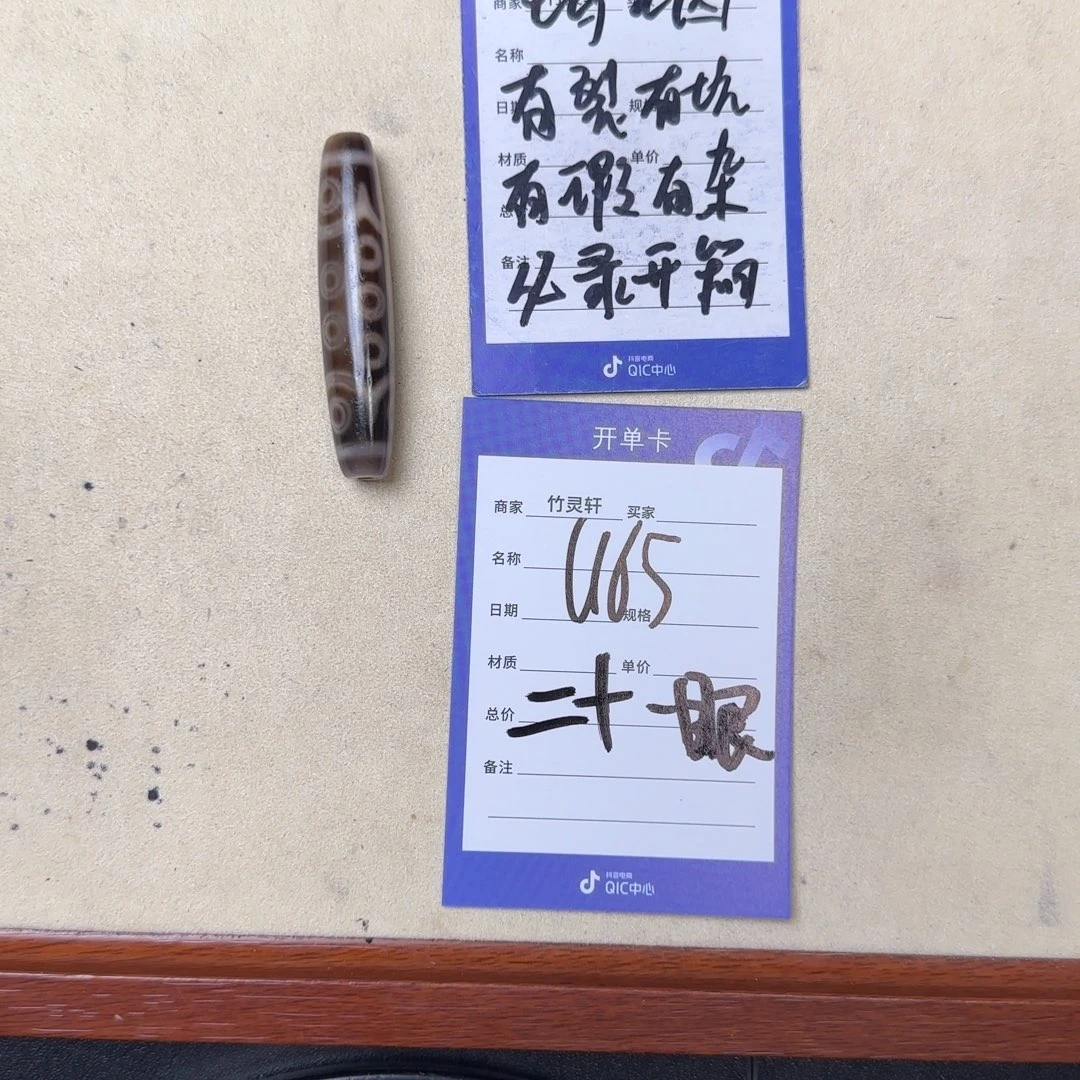 商家
名称
有裂有坑
日期 规
材质 单价
有瑕有杂
总
备注
必录开箱
抖音电商
QIC中心
开单卡
商家 竹灵轩 买家
名称
U65
日期 规格
材质 单价
二十一眼
总价
备注
抖音电商
QIC中心